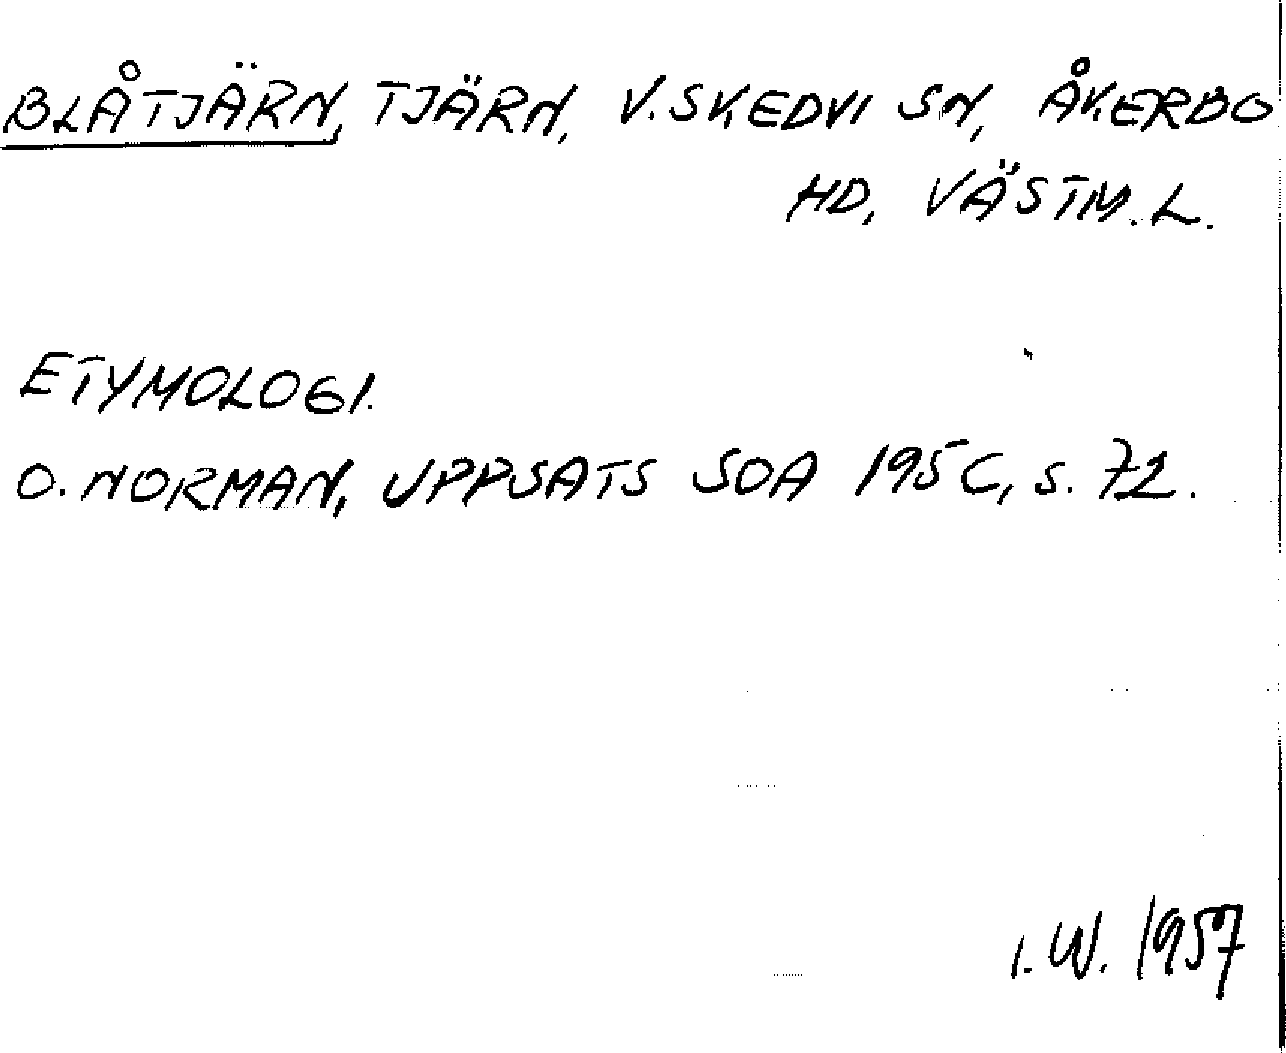 BLÅTJÄRN, TJÄRN, V. SKEDVI SN, ÅKERBO
HD, VÄSTM. L.
ETYMOLOGI.
O. NORMAN, UPPSATS SOA 1956, s. 72.
I. W. 1957